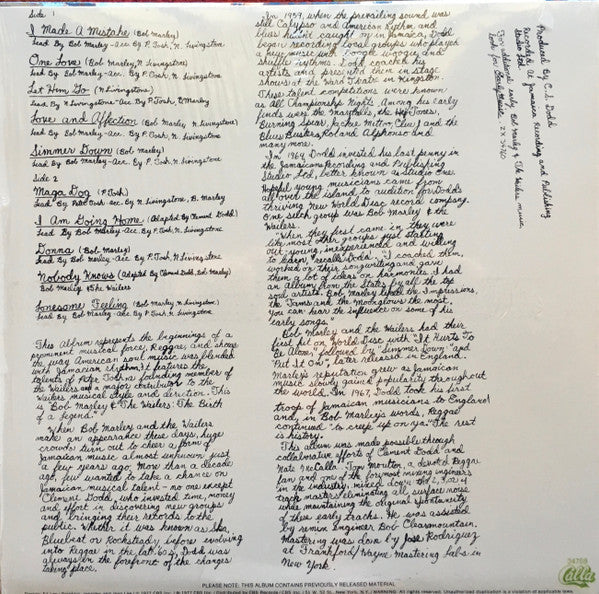 Side 1
I Made A Mistake (Bob Marley)
Lead By Bob Marley-Acc. By P. Tosh, N. Livingstone
One Love (Bob Marley, N. Livingstone)
Lead By Bob Marley-Acc. By P. Tosh, N. Livingstone
Let Him Go (N. Livingstone)
Lead By N. Livingstone-Acc. By P. Tosh, B. Marley
Love and Affection (Bob Marley, N. Livingstone)
Lead By Bob Marley-Acc. By P. Tosh, N. Livingstone
Simmer Down (Bob Marley)
Lead By Bob Marley-Acc. By P. Tosh, N. Livingstone
Side 2
Maga Dog (P. Tosh)
Lead By Peter Tosh-Acc. By N. Livingstone, B. Marley
I Am Going Home (Adapted By Clement Dodd)
Lead By Bob Marley-Acc. By P. Tosh, N. Livingstone
Donna (Bob Marley)
Lead By Bob Marley-Acc. By P. Tosh, N. Livingstone
Nobody Knows (Adapted By Clement Dodd, Bob Marley)
Bob Marley & The Wailers
Lonesome Feeling (Bob Marley, N. Livingstone)
Lead By Bob Marley-Acc. By P. Tosh, N. Livingstone
This Album represents the beginnings of a
prominent musical force, Reggae; and shows
the way American soul music was blended
with Jamaican rhythm. It features the
talents of Peter Tosh, a founding member of
the Wailers and a major contributor to the
Wailers musical style and direction. This
is Bob Marley & The Wailers: The Birth
of a legend."
When Bob Marley and the Wailers
make an appearance these days, huge
crowds turn out to cheer a form of
Jamaican music almost unknown just
a few years ago. More than a decade
ago, few wanted to take a chance on
Jamaican musical talent - no one except
Clement Dodd, who invested time, money
and effort in discovering new groups
and bringing their records to the
public. Whether it was known as Ska,
Bluebeat or Rocksteady before evolving
into Reggae in the late 60's, Dodd was
always in the forefront of the changes
taking place.
In 1959, when the prevailing sound was
still Calypso and American rhythm and
blues hadn't caught on in Jamaica, Dodd
began recording local groups who played
a new music with boogie woogie and
shuffle rhythms. Dodd coached his
artists and presented them in stage
shows at the Ward Theatre in Kingston.
These talent competitions were known
as All Championship Nights. Among his early
finds were the Maytals, the Heptones,
Burning Spear, Jackie Mittoo, Clue J and the
Blues Busters, Roland Alphonso and
many more.
In 1964, Dodd invested his last penny in
the Jamaican Recording and Publishing
Studio Ltd, better known as Studio One.
Hopeful young musicians came from
all over the island to audition for Dodd's
thriving New World Disc record company.
One such group was Bob Marley & the
Wailers.
"When they first came in, they were
like most other groups just starting
out - young, inexperienced and willing
to learn," recalls Dodd. "I coached them,
worked on their songwriting and gave
them a lot of ideas on harmonies. I had
an album from the States by all the top
soul artists. Bob Marley liked the Impressions,
the Tams and the Moonglows the most.
You can hear the influence on some of his
early songs."
Bob Marley and the Wailers had their
first hit on World Disc with "It Hurts To
Be Alone," followed by "Simmer Down" and
"Put It On", later released in England.
Marley's reputation grew as Jamaican
music slowly gained popularity throughout
the world. In 1967, Dodd took his first
troop of Jamaican musicians to England
and, in Bob Marley's words, Reggae
continued "to creep up on ya." The rest
is history.
This album was made possible through
collaborative efforts of Clement Dodd and
Nate McCalla. Tom Moulton, a devoted Reggae
fan and one of the foremost mixing engineers
in the industry, mixed down the 2, 3, & 4
track masters eliminating all surface noise
while maintaining the original spontaneity
of these early tracks. He was assisted
by remix Engineer Bob Clearmountain.
Mastering was done by Jose Rodriguez
at Frankford/Wayne Mastering Labs in
New York.
Produced By C.S. Dodd
Recorded At Jamaica Recording and Publishing
Studio Ltd.
For additional early Bob Marley & The Wailers music
Look for Early Music - ZX 34760
PLEASE NOTE: THIS ALBUM CONTAINS PREVIOUSLY RELEASED MATERIAL
34759
Calla